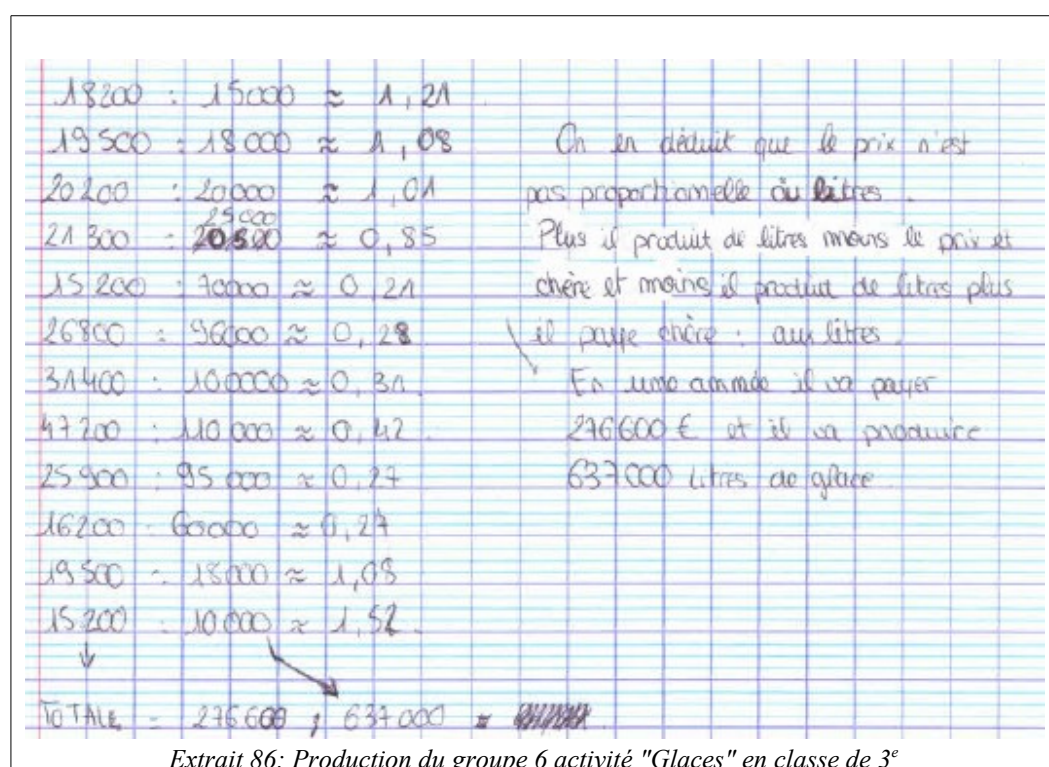 18200 : 15000 ≈ 1,21
19500 : 18000 ≈ 1,08
20200 : 20000 ≈ 1,01
25000
21300 : 20500 ≈ 0,85
15200 : 70000 ≈ 0,21
26800 : 96000 ≈ 0,28
31400 : 100000 ≈ 0,31
47200 : 110000 ≈ 0,42
25900 : 95000 ≈ 0,27
16200 : 60000 ≈ 0,27
19500 : 18000 ≈ 1,08
15200 : 10000 ≈ 1,52
TOTALE = 276600 ; 637000 =
On en déduit que le prix n'est
pas proportionnelle au litres.
Plus il produit de litres moins le prix et
chère et moins il produit de litres plus
il paye chère : aux litres.
En une année il va payer
276600 € et il va produire
637000 litres de glace
Extrait 86: Production du groupe 6 activité "Glaces" en classe de 3e